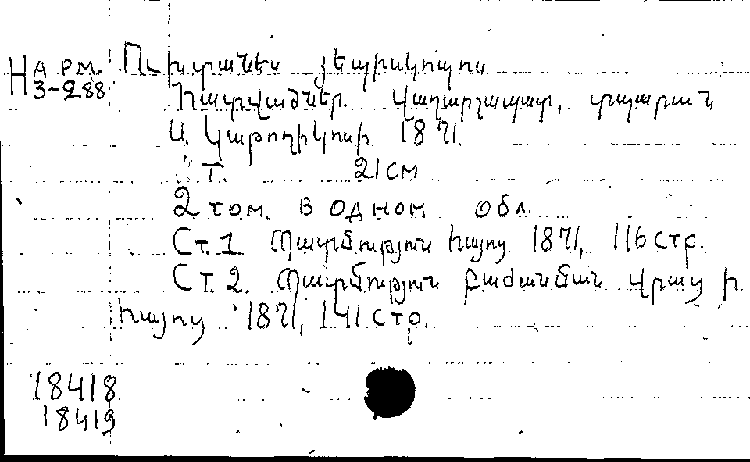 На арм. Ուխտանես եպիսկոպոս
З-288
Հատվածներ. Վաղարշապատ, տպարան
Ս. Կաթողիկոսի 1871.
Т. 21 см
2 том. в одном обл.
Ст. 1. Պատմություն հայոց 1871, 116 стр.
Ст. 2. Պատմություն բաժանման Վրաց ի
հայոց 1871, 141 стр.
18418
18419